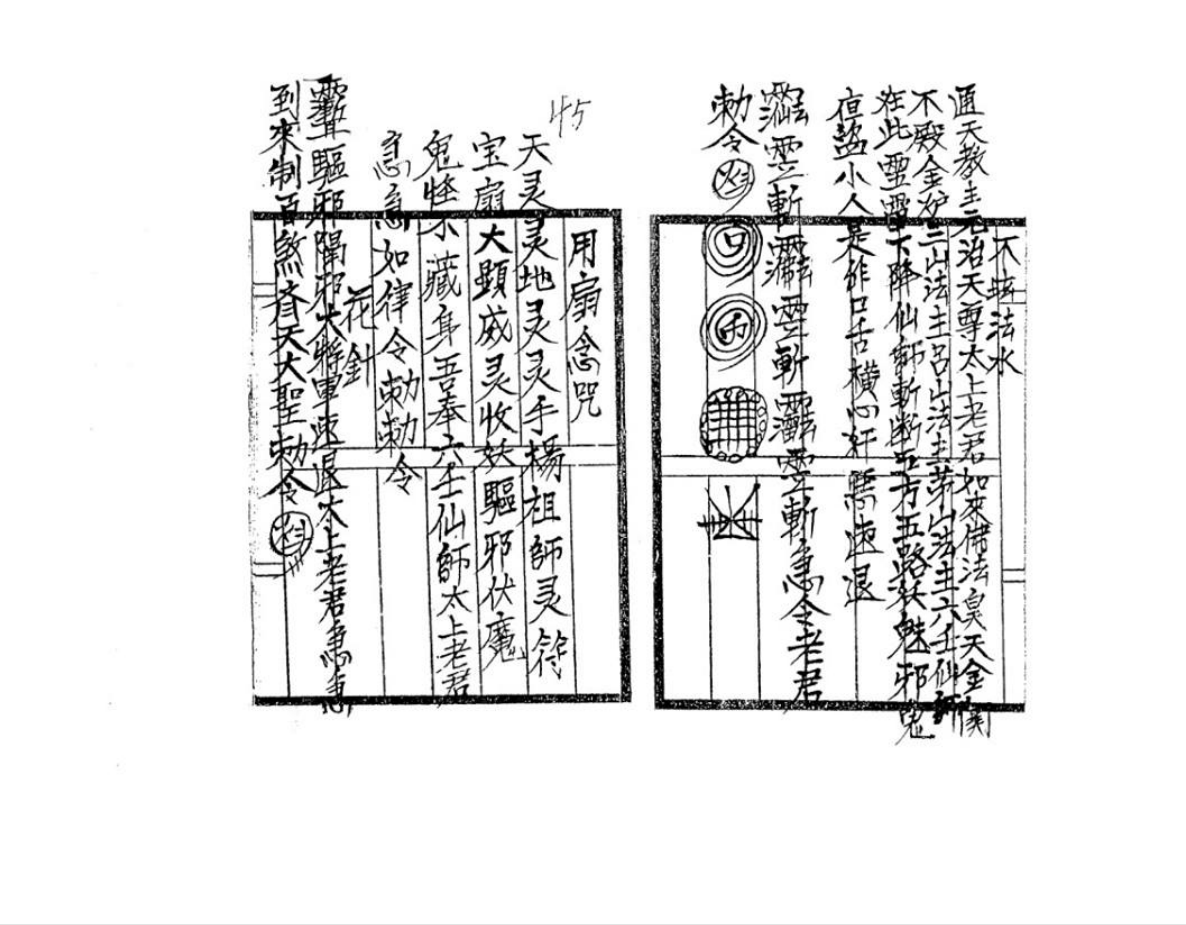 法水
通天教主元治天尊太上老君如來佛法皇天金闕
不殿金炉三山法主呂山法主茅山法主六壬仙師
在此靈霄下降仙師斬断五方五路妖魅邪鬼
盜小人是非口舌橫心奸惡速退
斬 斬 斬急令老君
勅令
45
用扇念咒
天灵灵地灵灵手揚祖師灵符
宝扇大顯威灵收妖驅邪伏魔
鬼怪不藏身吾奉六壬仙師太上老君
急急如律令勅勅令
花針
驅邪隔邪大將軍速退太上老君急急
到來制百煞齊天大聖勅令